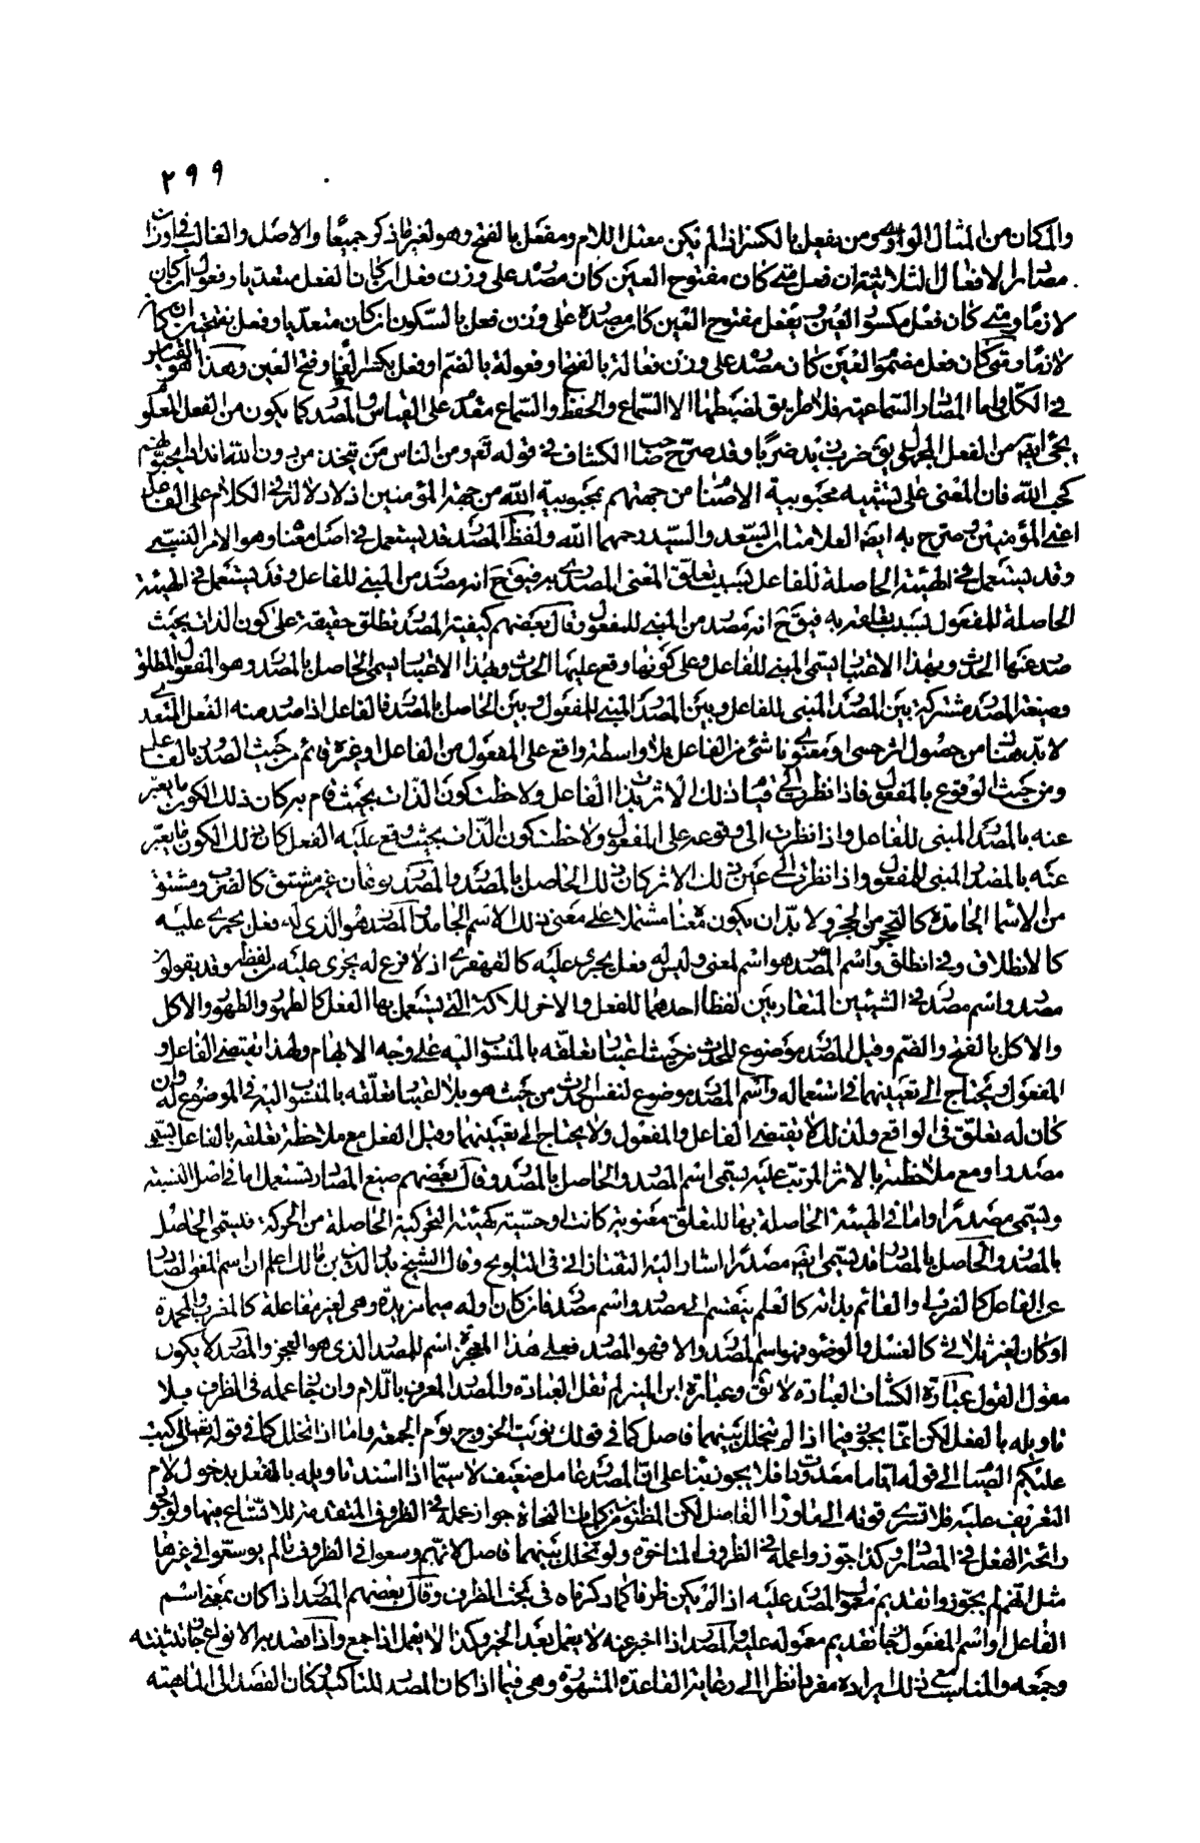 ٢٩٩
والمكان من المثال الواوي ومن يفعل بالكسر اذا لم يكن معتل اللام ومفعل بالفتح وهو لغير ما ذكر جميعا والاصل والغالب في اوزان
مصادر الافعال الثلاثية ان فعل متى كان مفتوح العين كان مصدره على وزن فعل ان كان الفعل متعديا وفعول ان كان
لازما ومتى كان فعل مكسور العين ويفعل مفتوح العين كان مصدره على وزن فعل بالسكون ان كان متعديا وفعل بفتحتين ان كان
لازما ومتى كان فعل مضموم العين كان مصدره على وزن فعالة بالفتح او فعولة بالضم او فعل بكسر الفاء وفتح العين وهذا هو القياس
في الكل واما المصادر السماعية فلا طريق لضبطها الا السماع والحفظ والسماع مقدم على القياس والمصدر كما يكون من الفعل المعلوم
يجئ ايضا من الفعل المجهول يق ضرب زيد ضربا وقد صرح صاحب الكشاف في قوله تعم ومن الناس من يتخذ من دون الله اندادا يحبونهم
كحب الله فان المعنى على تشبيه محبوبية الاصنام من جهتهم بمحبوبية الله من جهة المؤمنين اذ لا دلالة في الكلام على الفاعل
اعني المؤمنين صرح به ايضا العلامتان السعد والسيد رحمهما الله ولفظ المصدر قد يستعمل في اصل معناه وهو الامر النسبي
وقد يستعمل في الهيئة الحاصلة للفاعل بسبب تعلق المعنى المصدري به فيق ح انه مصدر من المبني للفاعل وقد يستعمل في الهيئة
الحاصلة للمفعول بسبب تعلقه به فيق ح انه مصدر من المبني للمفعول وقال بعضهم كيفية المصدر تطلق حقيقة على كون الذات بحيث
صدر عنها الحدث وبهذا الاعتبار يسمى المبني للفاعل وعلى كونها وقع عليها الحدث وبهذا الاعتبار يسمى الحاصل بالمصدر وهو المفعول المطلق
وصيغة المصدر مشتركة بين المصدر المبنى للفاعل وبين المصدر المبني للمفعول وبين الحاصل بالمصدر فالفاعل اذا صدر منه الفعل المتعدي
لا بد هناك من حصول اثر حسي او معنوي ناشئ من الفاعل بلا واسطة واقع على المفعول من الفاعل او غيره قائم من حيث الصدور بالفاعل
ومن حيث الوقوع بالمفعول فاذا نظرت الى قيام ذلك الاثر بذات الفاعل ولاحظت كون الذات بحيث قام به كان ذلك الكون ما يعبر
عنه بالمصدر المبني للفاعل واذا نظرت الى وقوعه على المفعول ولاحظت كون الذات بحيث وقع عليه الفعل كان ذلك الكون ما يعبر
عنه بالمصدر المبني للمفعول واذا نظرت الى عين ذلك الاثر كان ذلك الحاصل بالمصدر والمصدر نوعان غير مشتق كالضرب ومشتق
من الاسماء الجامدة كالتحجر من الحجر ولا بد ان يكون معناه مشتملا على معنى ذلك الاسم الجامد والمصدر هو الذي له فعل يجري عليه
كالانطلاق في انطلق واسم المصدر هو اسم لمعنى وليس له فعل يجري عليه كالقهقرى اذ لا فرع له يجري عليه من لفظه وقد يقولون
مصدر واسم مصدر في الشيئين المتقاربين لفظا احدهما للفعل والاخر للالة التي يستعمل بها الفعل كالطهور والطهور والاكل
والاكل بالفتح والضم وقيل المصدر موضوع للحدث من حيث اعتبار تعلقه بالمنسوب اليه على وجه الابهام ولهذا يقتضي الفاعل و
المفعول ويحتاج الى تعيينهما في استعماله واسم المصدر موضوع لنفس الحدث من حيث هو بلا اعتبار تعلقه بالمنسوب اليه في الموضوع له وان
كان له تعلق في الواقع ولذلك لا يقتضي الفاعل والمفعول ولا يحتاج الى تعيينهما وقيل الفعل مع ملاحظة تعلقه بالفاعل يسمى
مصدرا ومع ملاحظته بالاثر المرتب عليه يسمى اسم المصدر والحاصل بالمصدر وقال بعضهم صيغ المصادر تستعمل اما في اصل النسبة
وليسمى مصدرا واما في الهيئة الحاصلة بها للمتعلق معنوية كانت او حسية كهيئة المتحركية الحاصلة من الحركة فليسمى الحاصل
بالمصدر والحاصل بالمصدر قد يسمى ايضا مصدرا اشار اليه التفتازاني في التلويح وقال الشيخ بدر الدين بن مالك اعلم ان اسم المعنى الصادر
عن الفاعل كالضرب او القائم بذاته كالعلم ينقسم الى مصدر واسم مصدر فان كان اوله ميما مزيدة وهي لغير مفاعلة كالمضرب والمحمدة
او كان لغير ثلاثي كالغسل والوضوء فهو اسم المصدر والا فهو المصدر فعلى هذا المعجزة اسم للمصدر الذي هو العجز والمصدر لا يكون
مقول القول عبارة الكشاف العبادة لا تق وعبارة ابن المنير لم تقل العبادة والمصدر المعرف باللام وان جاز عمله في الظرف بلا
تاويله بالفعل لكن انما يجوز فيما اذا لم يتخلل بينهما فاصل كما في قولك نويت الخروج يوم الجمعة واما اذا تخلل كما في قوله تعالى كتب
عليكم الصيام الى قوله اياما معدودات فلا يجوز بناء على ان المصدر عامل ضعيف لا سيما اذا اشتد تاويله بالفعل بدخول لام
التعريف عليه فلا تسري قوته الى ما وراء الفاصل لكن المظنون من كلمات النحاة جواز عمله في الظروف المتقدمة للاتساع فيها ولوجود
رائحة الفعل في المصادر وكذا جوزوا عمله في الظروف المتاخرة ولو تخلل بينهما فاصل لانهم وسعوا في الظروف ما لم يوسعوا في غيرها
مثل انهم لم يجوزوا تقديم معمول المصدر عليه اذا لم يكن ظرفا كما ذكرناه في بحث الظرف وقال بعضهم المصدر اذا كان بمعنى اسم
الفاعل او اسم المفعول جاز تقديم معموله عليه والمصدر اذا اخبر عنه لا يعمل بعد الخبر وكذا لا يعمل اذا جمع واذا قصد به الانواع جاز تثنيته
وجمعه والمناسب في ذلك ايراده مفردا نظرا الى رعاية القاعدة المشهورة وهي فيما اذا كان المصدر للتاكيد وكان القصد الى الماهية